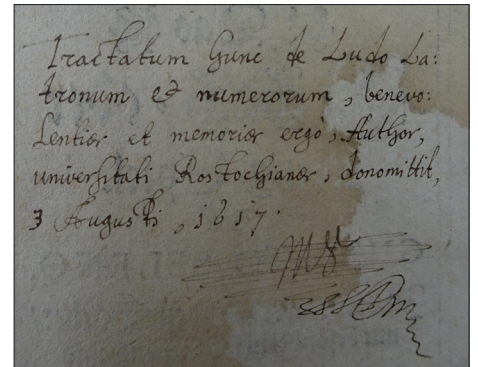 Tractatum hunc de Ludo La:
tronum et numerorum, benevo:
lentiæ et memoriæ ergò, Author,
universitati Rostochianæ, donomittit,
3 Augusti, 1617.